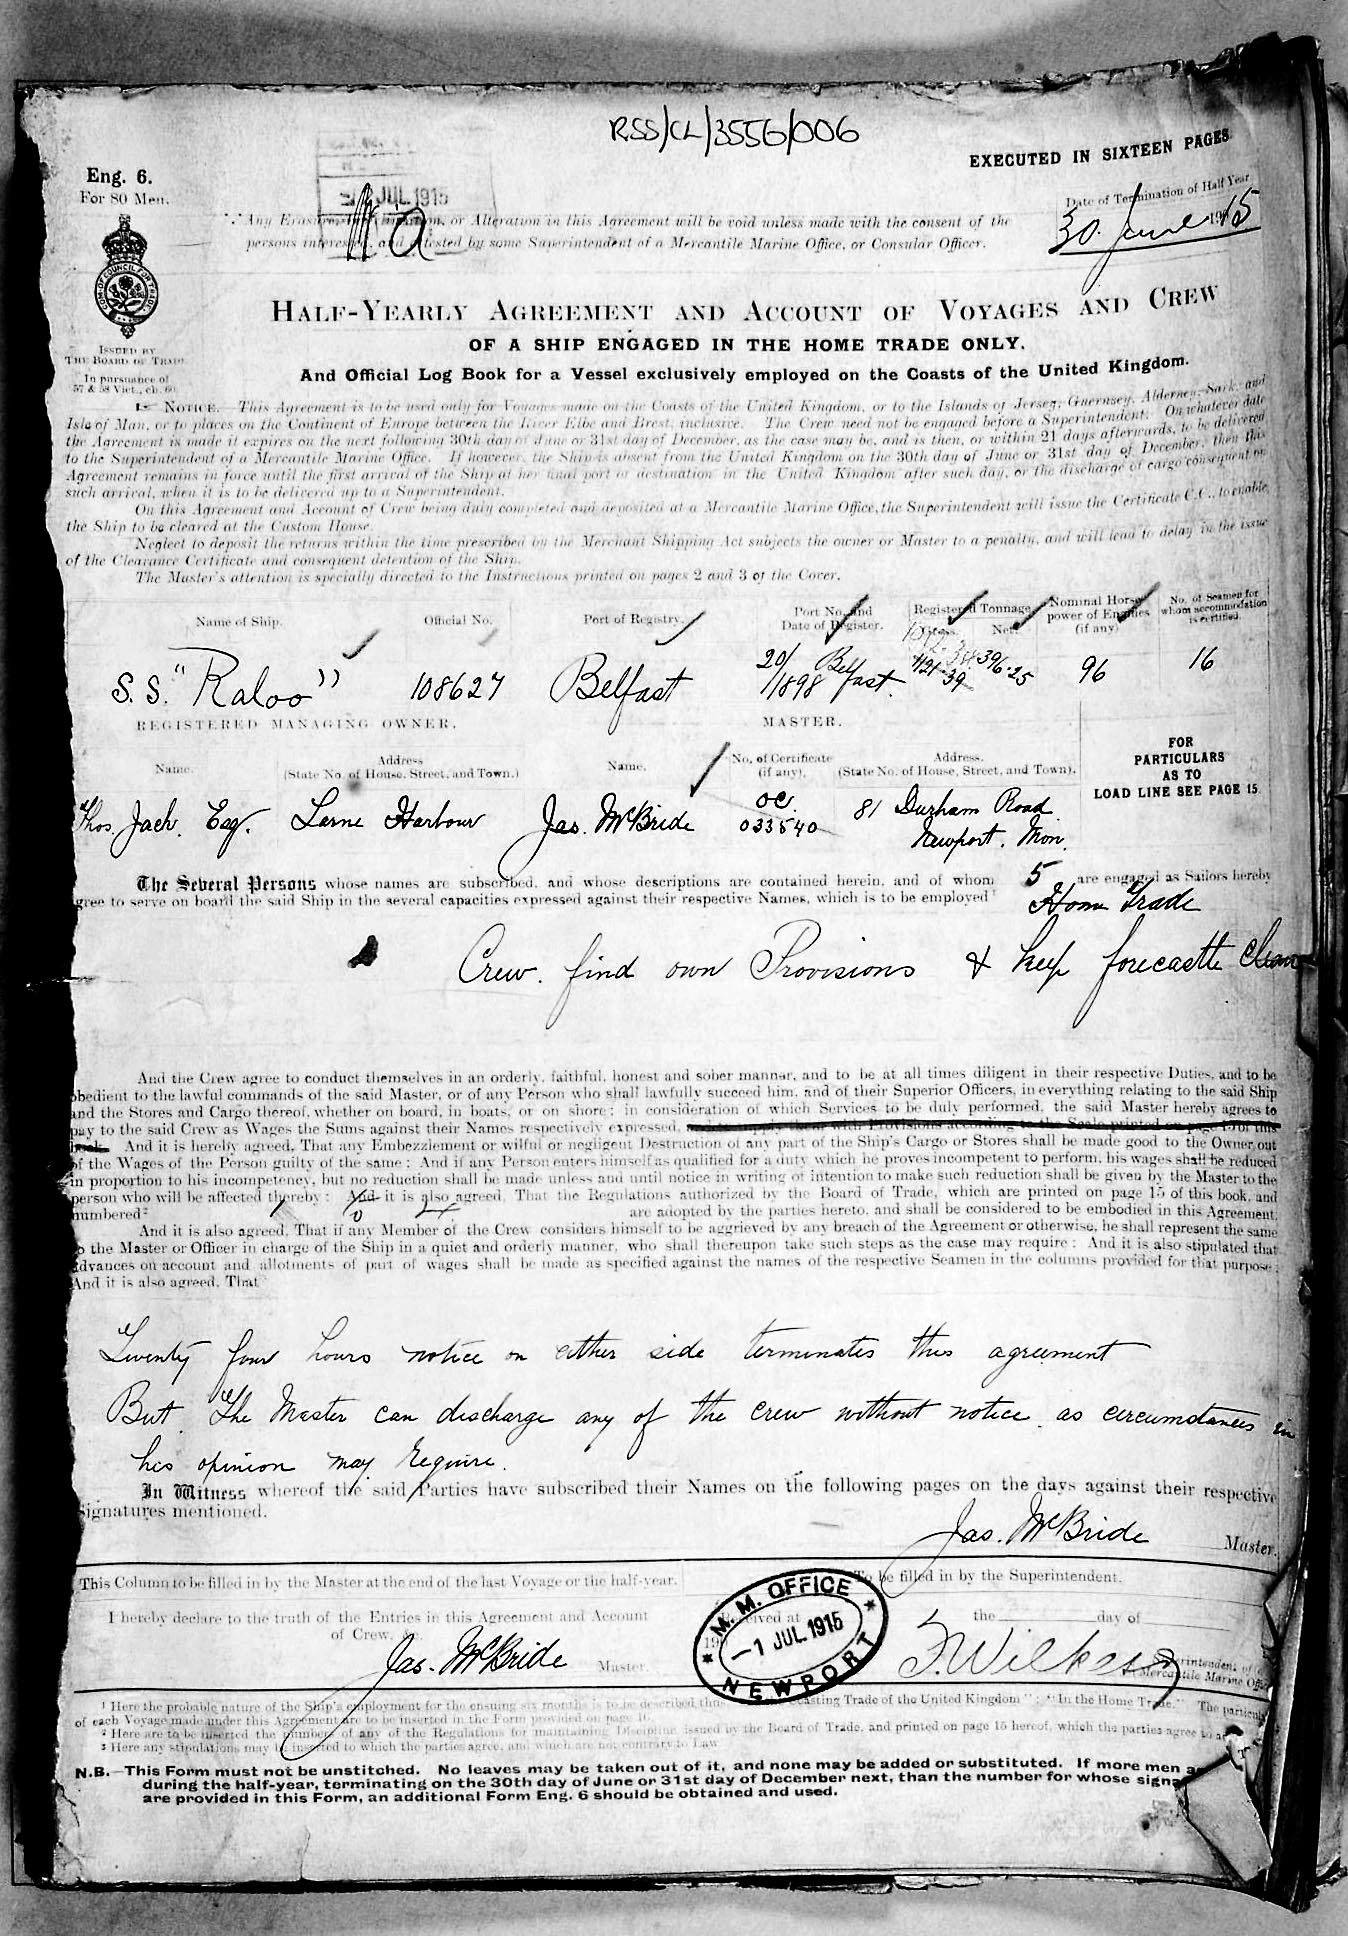 RSS/CL/3556/006
EXECUTED IN SIXTEEN PAGES
Eng. 6.
For 80 Men.
JUL 1915
Date of Termination of Half Year
30. June 1915
Any Erasure, or Alteration in this Agreement will be void unless made with the consent of the
persons interested, and attested by some Superintendent of a Mercantile Marine Office, or Consular Officer.
HALF-YEARLY AGREEMENT AND ACCOUNT OF VOYAGES AND CREW
OF A SHIP ENGAGED IN THE HOME TRADE ONLY.
And Official Log Book for a Vessel exclusively employed on the Coasts of the United Kingdom.
ISSUED BY
THE BOARD OF TRADE
In pursuance of
57 & 58 Vict., ch. 60.
NOTICE.—This Agreement is to be used only for Voyages made on the Coasts of the United Kingdom, or to the Islands of Jersey, Guernsey, Alderney, Sark, and
Isle of Man, or to places on the Continent of Europe between the River Elbe and Brest, inclusive. The Crew need not be engaged before a Superintendent. On whatever date
the Agreement is made it expires on the next following 30th day of June or 31st day of December, as the case may be, and is then, or within 21 days afterwards, to be delivered
to the Superintendent of a Mercantile Marine Office. If however, the Ship is absent from the United Kingdom on the 30th day of June or 31st day of December, then this
Agreement remains in force until the first arrival of the Ship at her final port of destination in the United Kingdom after such day, or the discharge of cargo consequent on
such arrival, when it is to be delivered up to a Superintendent.
On this Agreement and Account of Crew being duly completed and deposited at a Mercantile Marine Office, the Superintendent will issue the Certificate C.C., to enable
the Ship to be cleared at the Custom House.
Neglect to deposit the returns within the time prescribed by the Merchant Shipping Act subjects the owner or Master to a penalty, and will lead to delay in the issue
of the Clearance Certificate and consequent detention of the Ship.
The Master's attention is specially directed to the Instructions printed on pages 2 and 3 of the Cover.
Name of Ship. Official No. Port of Registry. Port No. and Date of Register. Registered Tonnage Gross. Net. Nominal Horse power of Engines (if any) No. of Seamen for whom accommodation is certified.
S.S. "Raloo" 108627 Belfast 20/1898 Belfast. 1121.39 396.25 96 16
REGISTERED MANAGING OWNER. MASTER.
Name. Address (State No. of House, Street, and Town.) Name. No. of Certificate (if any). Address. (State No. of House, Street, and Town).
FOR
PARTICULARS
AS TO
LOAD LINE SEE PAGE 15
Thos. Jack. Esq. Larne Harbour Jas. McBride OC. 033540 81 Durham Road
Newport. Mon.
The Several Persons whose names are subscribed, and whose descriptions are contained herein, and of whom 5 are engaged as Sailors hereby
agree to serve on board the said Ship in the several capacities expressed against their respective Names, which is to be employed¹ Home Trade
Crew. find own Provisions & keep forecastle clean
And the Crew agree to conduct themselves in an orderly, faithful, honest and sober manner, and to be at all times diligent in their respective Duties, and to be
obedient to the lawful commands of the said Master, or of any Person who shall lawfully succeed him, and of their Superior Officers, in everything relating to the said Ship
and the Stores and Cargo thereof, whether on board, in boats, or on shore; in consideration of which Services to be duly performed, the said Master hereby agrees to
pay to the said Crew as Wages the Sums against their Names respectively expressed, and to supply them with Provisions according to the Scale printed on page 1 of this
book. And it is hereby agreed, That any Embezzlement or wilful or negligent Destruction of any part of the Ship's Cargo or Stores shall be made good to the Owner out
of the Wages of the Person guilty of the same: And if any Person enters himself as qualified for a duty which he proves incompetent to perform, his wages shall be reduced
in proportion to his incompetency, but no reduction shall be made unless and until notice in writing of intention to make such reduction shall be given by the Master to the
person who will be affected thereby: And it is also agreed, That the Regulations authorized by the Board of Trade, which are printed on page 15 of this book, and
numbered² are adopted by the parties hereto, and shall be considered to be embodied in this Agreement.
And it is also agreed, That if any Member of the Crew considers himself to be aggrieved by any breach of the Agreement or otherwise, he shall represent the same
to the Master or Officer in charge of the Ship in a quiet and orderly manner, who shall thereupon take such steps as the case may require: And it is also stipulated that
advances on account and allotments of part of wages shall be made as specified against the names of the respective Seamen in the columns provided for that purpose:
And it is also agreed, That³
Twenty four hours notice on either side terminates this agreement
But The Master can discharge any of the crew without notice as circumstances in
his opinion may require.
In Witness whereof the said Parties have subscribed their Names on the following pages on the days against their respective
Signatures mentioned.
Jas. McBride Master.
This Column to be filled in by the Master at the end of the last Voyage or the half-year.
To be filled in by the Superintendent.
I hereby declare to the truth of the Entries in this Agreement and Account
of Crew, &c.
Jas. McBride Master.
Received at the day of
M. M. OFFICE
-1 JUL 1915
NEWPORT
Superintendent of
Mercantile Marine Office
¹ Here the probable nature of the Ship's employment for the ensuing six months is to be described, thus Coasting Trade of the United Kingdom"; "In the Home Trade." The particulars
of each Voyage made under this Agreement are to be inserted in the Form provided on page 16.
² Here are to be inserted the numbers of any of the Regulations for maintaining Discipline issued by the Board of Trade, and printed on page 15 hereof, which the parties agree to
³ Here any stipulations may be inserted to which the parties agree, and which are not contrary to Law
N.B.—This Form must not be unstitched. No leaves may be taken out of it, and none may be added or substituted. If more men
during the half-year, terminating on the 30th day of June or 31st day of December next, than the number for whose
are provided in this Form, an additional Form Eng. 6 should be obtained and used.